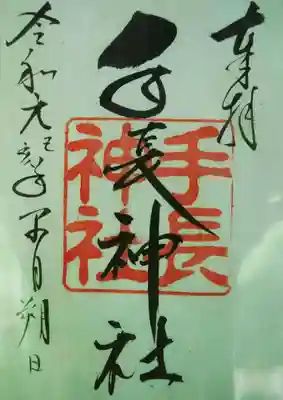 奉拝
手長神社
手長
神社
令和元己亥年月朔日